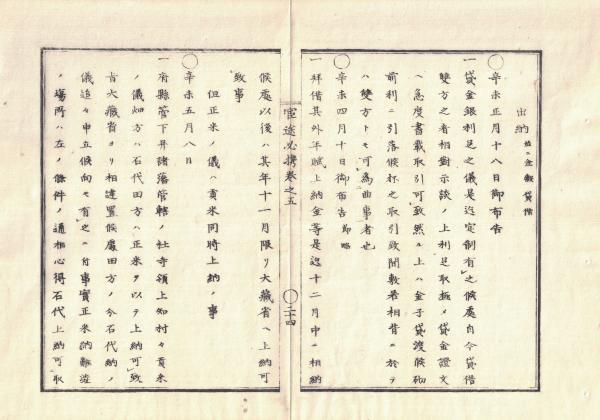 出納 並ニ金穀貸借
○辛未正月十八日御布告
一貸金銀利足之儀是迄定制有之候處自今貸借
雙方之者相對示談ノ上利足取極メ貸金證文
ヘ急度書載取引可致然ル上ハ金子貸渡候砌
前利ニ引落候抔之取引致間敷若相背ニ於テ
ハ雙方トモ可為曲事者也
○辛未四月十日御布告節略
一拜借其外年賦上納金等是迄十二月中ニ相納
官途必携巻之五
○二十四
候處以後ハ其年十一月限リ大藏省ヘ上納可
致事
但正米ノ儀ハ貢米同時上納ノ事
○辛未五月八日
一府縣管下并諸藩管轄ノ社寺領上知村々貢米
ノ儀畑方ハ石代田方ハ正米ヲ以テ上納可致
旨大藏省ヨリ相達置候處田方ノ今石代納ノ
儀追々申立候向モ有之ニ付事實正米納難澁
ノ場所ハ左ノ條件ノ通相心得石代上納可取